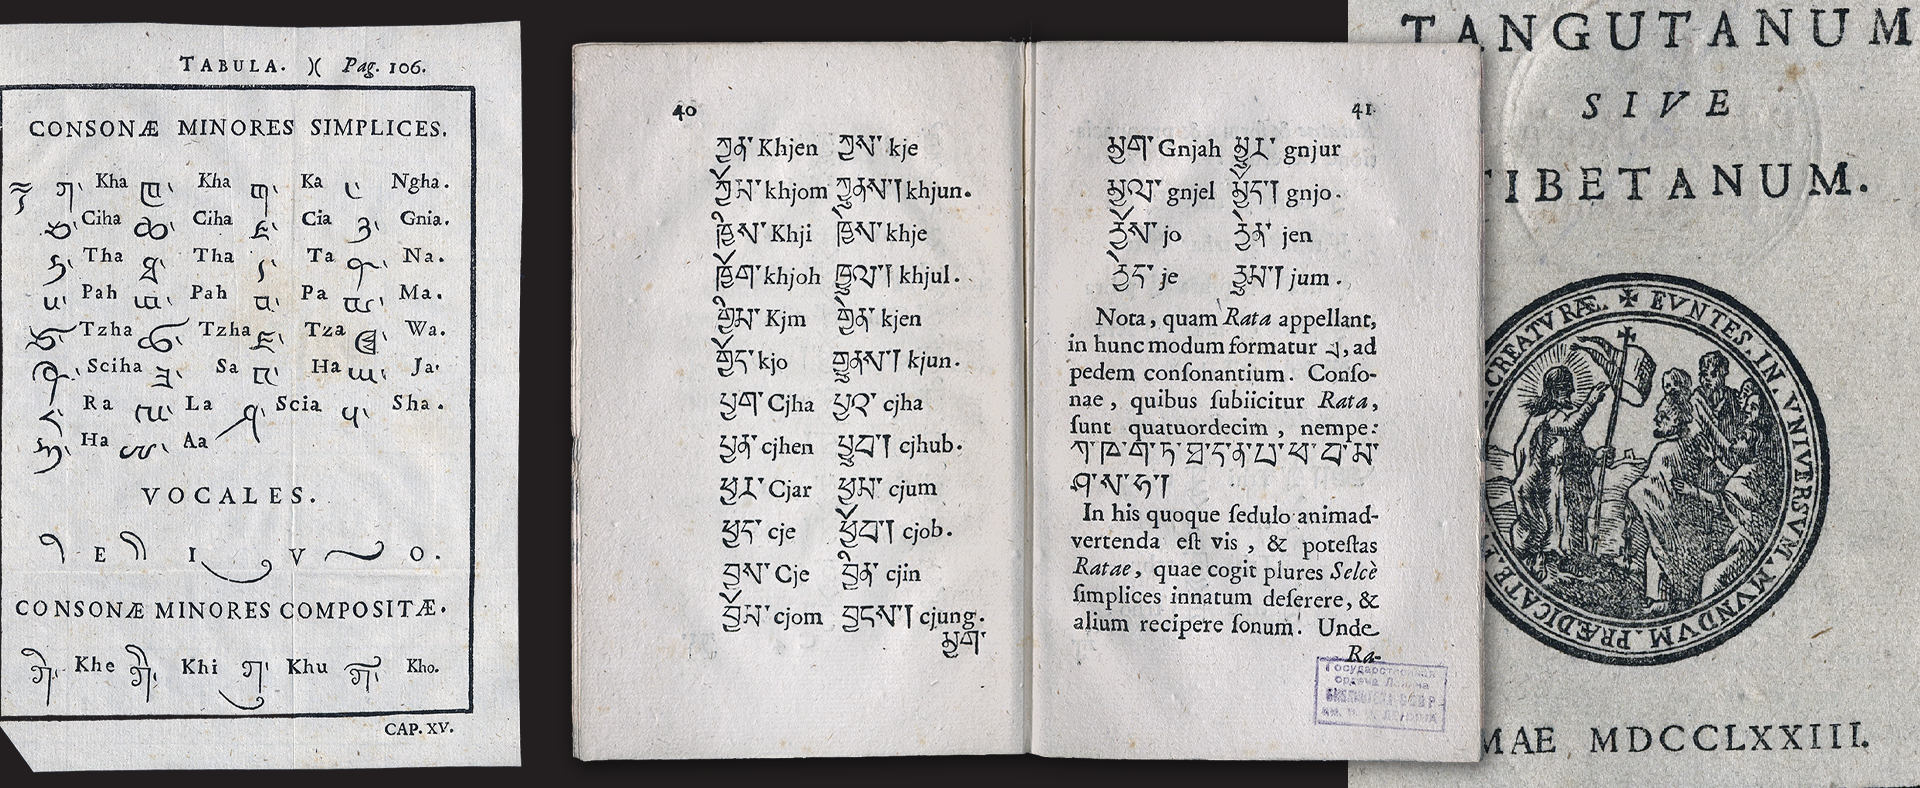 TABULA. )( Pag. 106.
CONSONÆ MINORES SIMPLICES.
Kha Kha Ka Ngha.
Ciha Ciha Cia Gnia.
Tha Tha Ta Na.
Pah Pah Pa Ma.
Tzha Tzha Tza Wa.
Sciha Sa Ha Ja.
Ra La Scia Sha.
Ha Aa
VOCALES.
E I V O.
CONSONÆ MINORES COMPOSITÆ.
Khe Khi Khu Kho.
CAP. XV.
40
ཀྱན་ Khjen ཀྱས་ kje
ཀྱོམ་ khjom ཀྱུནས། khjun.
ཁྱིས་ Khji ཁྱེས་ khje
ཁྱོག་ khjoh ཁྱུལ། khjul.
གྱིམ་ Kjm གྱེན་ kjen
གྱོད་ kjo གྱུནས། kjun.
པྱག་ Cjha པྱའ་ cjha
པྱན་ cjhen པྱུབ། cjhub.
ཕྱར་ Cjar ཕྱུམ་ cjum
ཕྱད་ cje ཕྱོབ། cjob.
བྱས་ Cje བྱིན་ cjin
བྱོམ་ cjom བྱུངས། cjung.
མྱག་
41
མྱག་ Gnjah མྱུར་ gnjur
མྱལ་ gnjel མྱོད། gnjo.
jo jen
je jum.
Nota, quam Rata appellant,
in hunc modum formatur ྱ, ad
pedem conſonantium. Conſo-
nae, quibus ſubiicitur Rata,
ſunt quatuordecim, nempe:
ཀ་ཁ་ག་ཏ་ཐ་ད་ན་པ་ཕ་བ་མ་
ཤ་ས་ཧ།
In his quoque ſedulo animad-
vertenda eſt vis, & poteſtas
Ratae, quae cogit plures Selcè
ſimplices innatum deſerere, &
alium recipere ſonum. Unde
Ra-
Государственная
ордена Ленина
БИБЛИОТЕКА СССР
TANGUTANUM
SIVE
TIBETANUM.
CREATVRÆ. ✠ EVNTES. IN. VNIVERSVM. MVNDVM. PRÆDICATE.
MAE MDCCLXXIII.